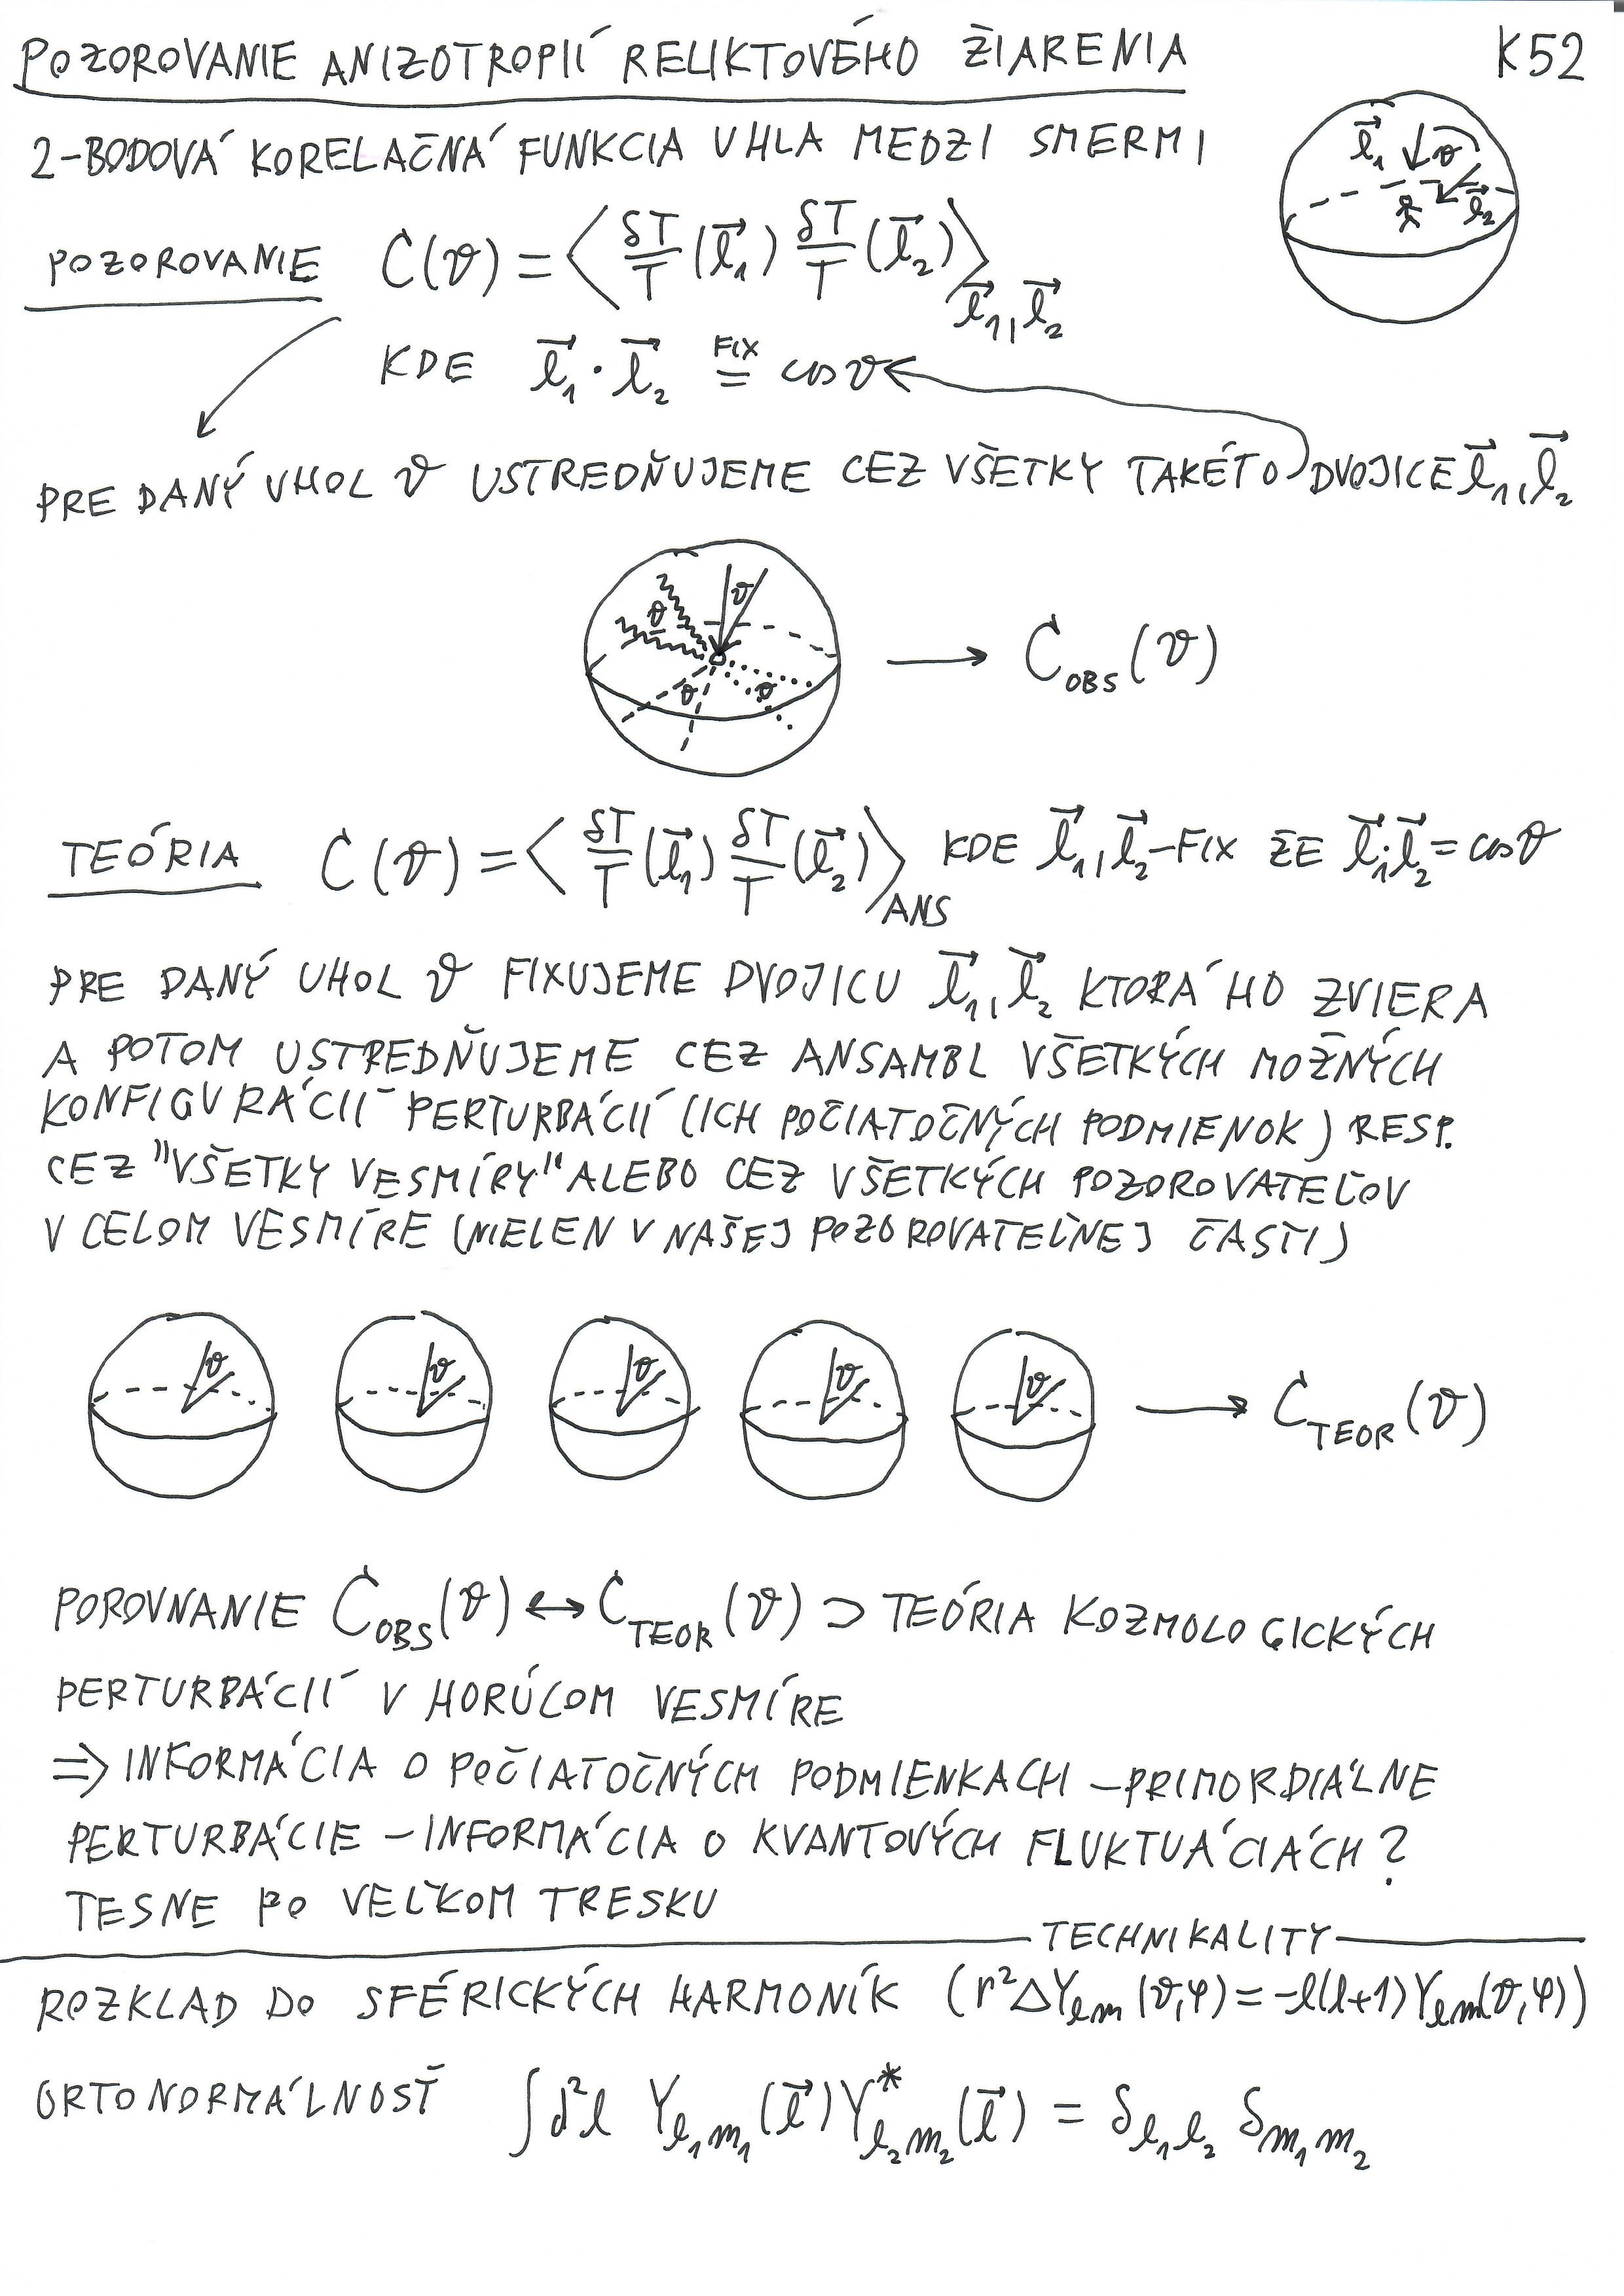 POZOROVANIE ANIZOTROPIÍ RELIKTOVÉHO ŽIARENIA K52
2-BODOVÁ KORELAČNÁ FUNKCIA UHLA MEDZI SMERMI
l⃗₁ ϑ l⃗₂
POZOROVANIE C(ϑ) = ⟨ δT/T (l⃗₁) δT/T (l⃗₂) ⟩ l⃗₁, l⃗₂
KDE l⃗₁ · l⃗₂ FIX = cos ϑ
PRE DANÝ UHOL ϑ USTREDŇUJEME CEZ VŠETKY TAKÉTO DVOJICE l⃗₁, l⃗₂
ϑ ϑ ϑ ϑ → C_OBS (ϑ)
TEÓRIA C(ϑ) = ⟨ δT/T (l⃗₁) δT/T (l⃗₂) ⟩_ANS KDE l⃗₁, l⃗₂ – FIX ŽE l⃗₁·l⃗₂ = cos ϑ
PRE DANÝ UHOL ϑ FIXUJEME DVOJICU l⃗₁, l⃗₂ KTORÁ HO ZVIERA
A POTOM USTREDŇUJEME CEZ ANSAMBL VŠETKÝCH MOŽNÝCH
KONFIGURÁCIÍ PERTURBÁCIÍ (ICH POČIATOČNÝCH PODMIENOK) RESP.
CEZ "VŠETKY VESMÍRY" ALEBO CEZ VŠETKÝCH POZOROVATEĽOV
V CELOM VESMÍRE (NIELEN V NAŠEJ POZOROVATEĽNEJ ČASTI)
ϑ ϑ ϑ ϑ ϑ → C_TEOR (ϑ)
POROVNANIE C_OBS (ϑ) ↔ C_TEOR (ϑ) ⊃ TEÓRIA KOZMOLOGICKÝCH
PERTURBÁCIÍ V HORÚCOM VESMÍRE
⇒ INFORMÁCIA O POČIATOČNÝCH PODMIENKACH – PRIMORDIÁLNE
PERTURBÁCIE – INFORMÁCIA O KVANTOVÝCH FLUKTUÁCIÁCH?
TESNE PO VEĽKOM TRESKU
TECHNIKALITY
ROZKLAD DO SFÉRICKÝCH HARMONÍK (r²ΔY_lm (ϑ,φ) = -l(l+1) Y_lm (ϑ,φ))
ORTONORMÁLNOSŤ ∫d²l Y_l₁m₁ (l⃗) Y*_l₂m₂ (l⃗) = δ_l₁l₂ δ_m₁m₂